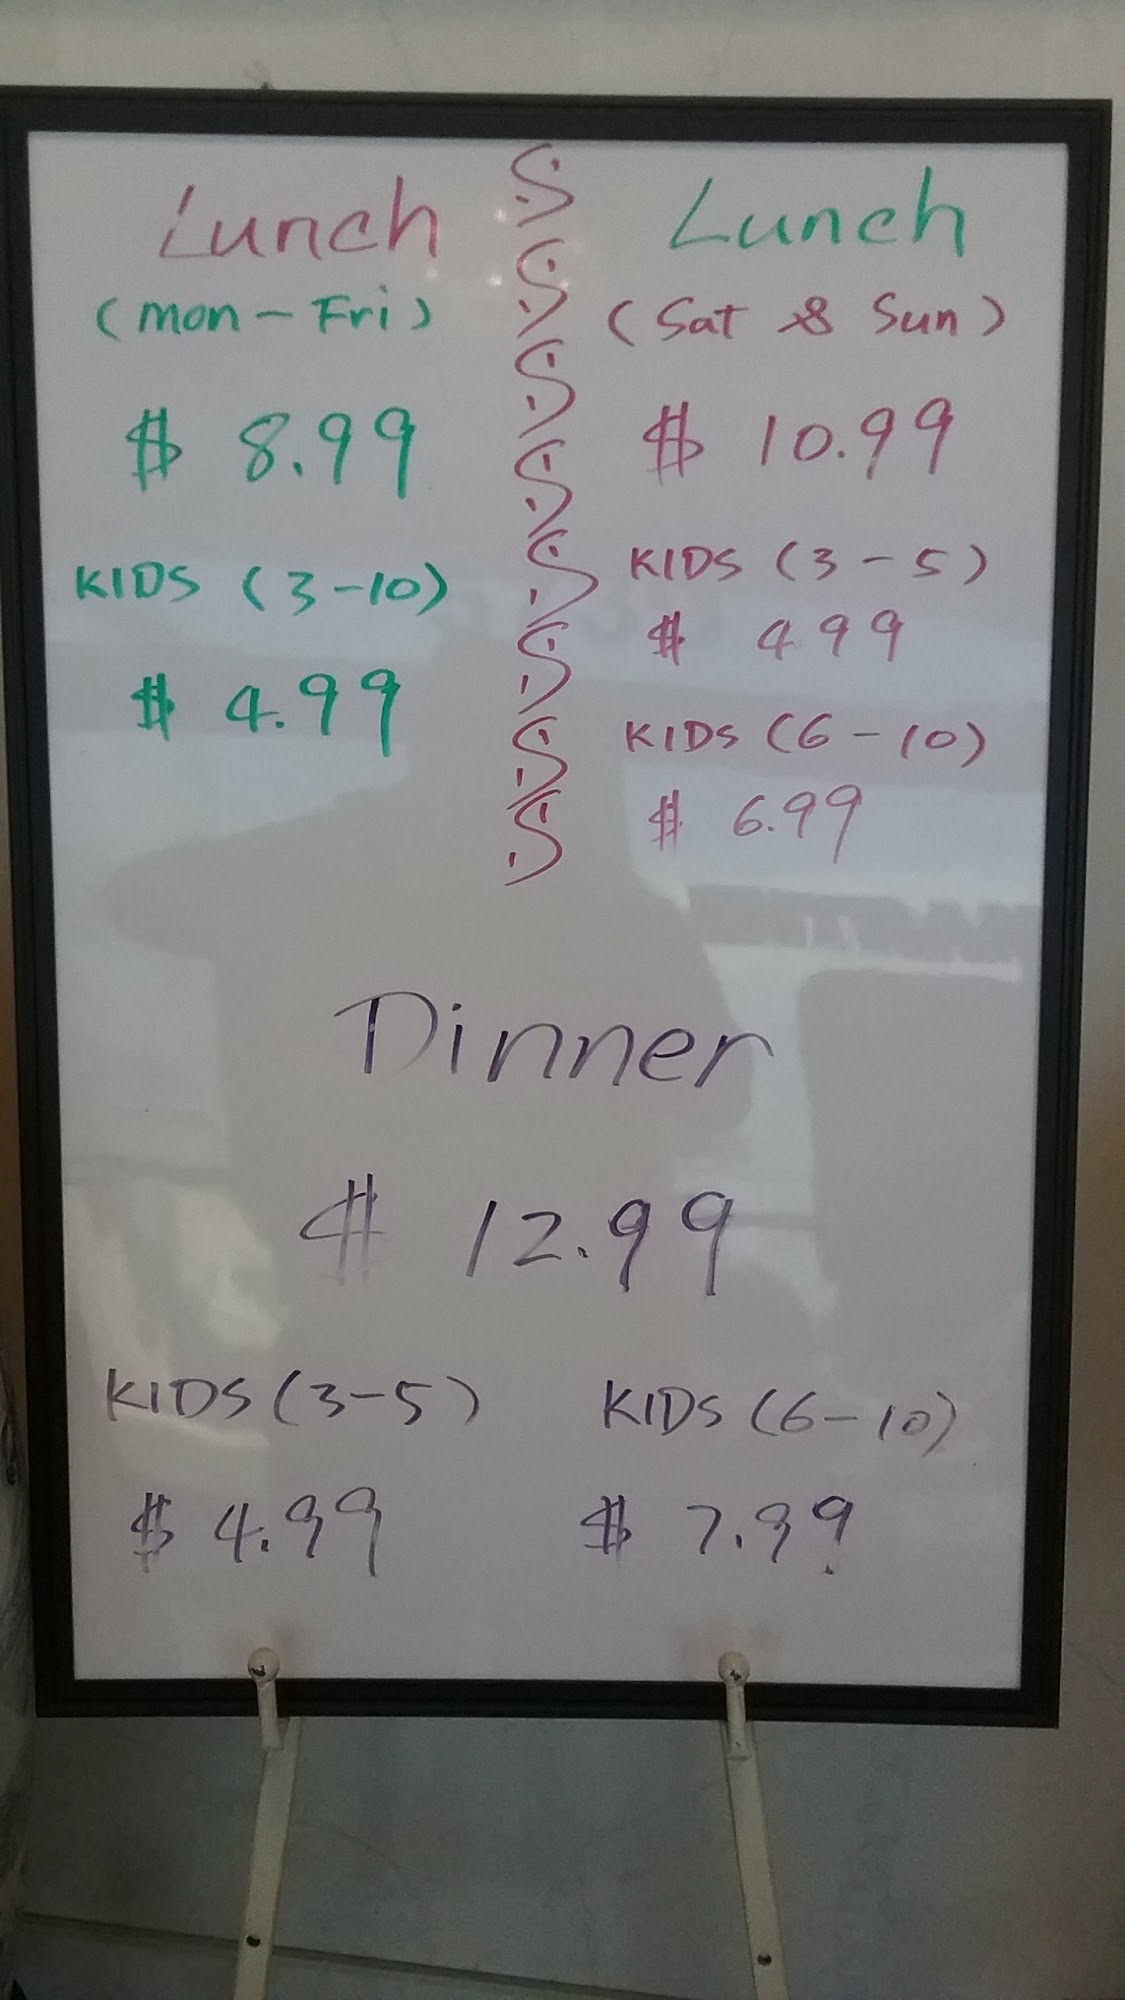 Lunch
(mon - Fri)
$ 8.99
KIDS (3-10)
$ 4.99
Lunch
(Sat & Sun)
$ 10.99
KIDS (3-5)
$ 4.99
KIDS (6-10)
$ 6.99
Dinner
$ 12.99
KIDS (3-5)
$ 4.99
KIDS (6-10)
$ 7.99